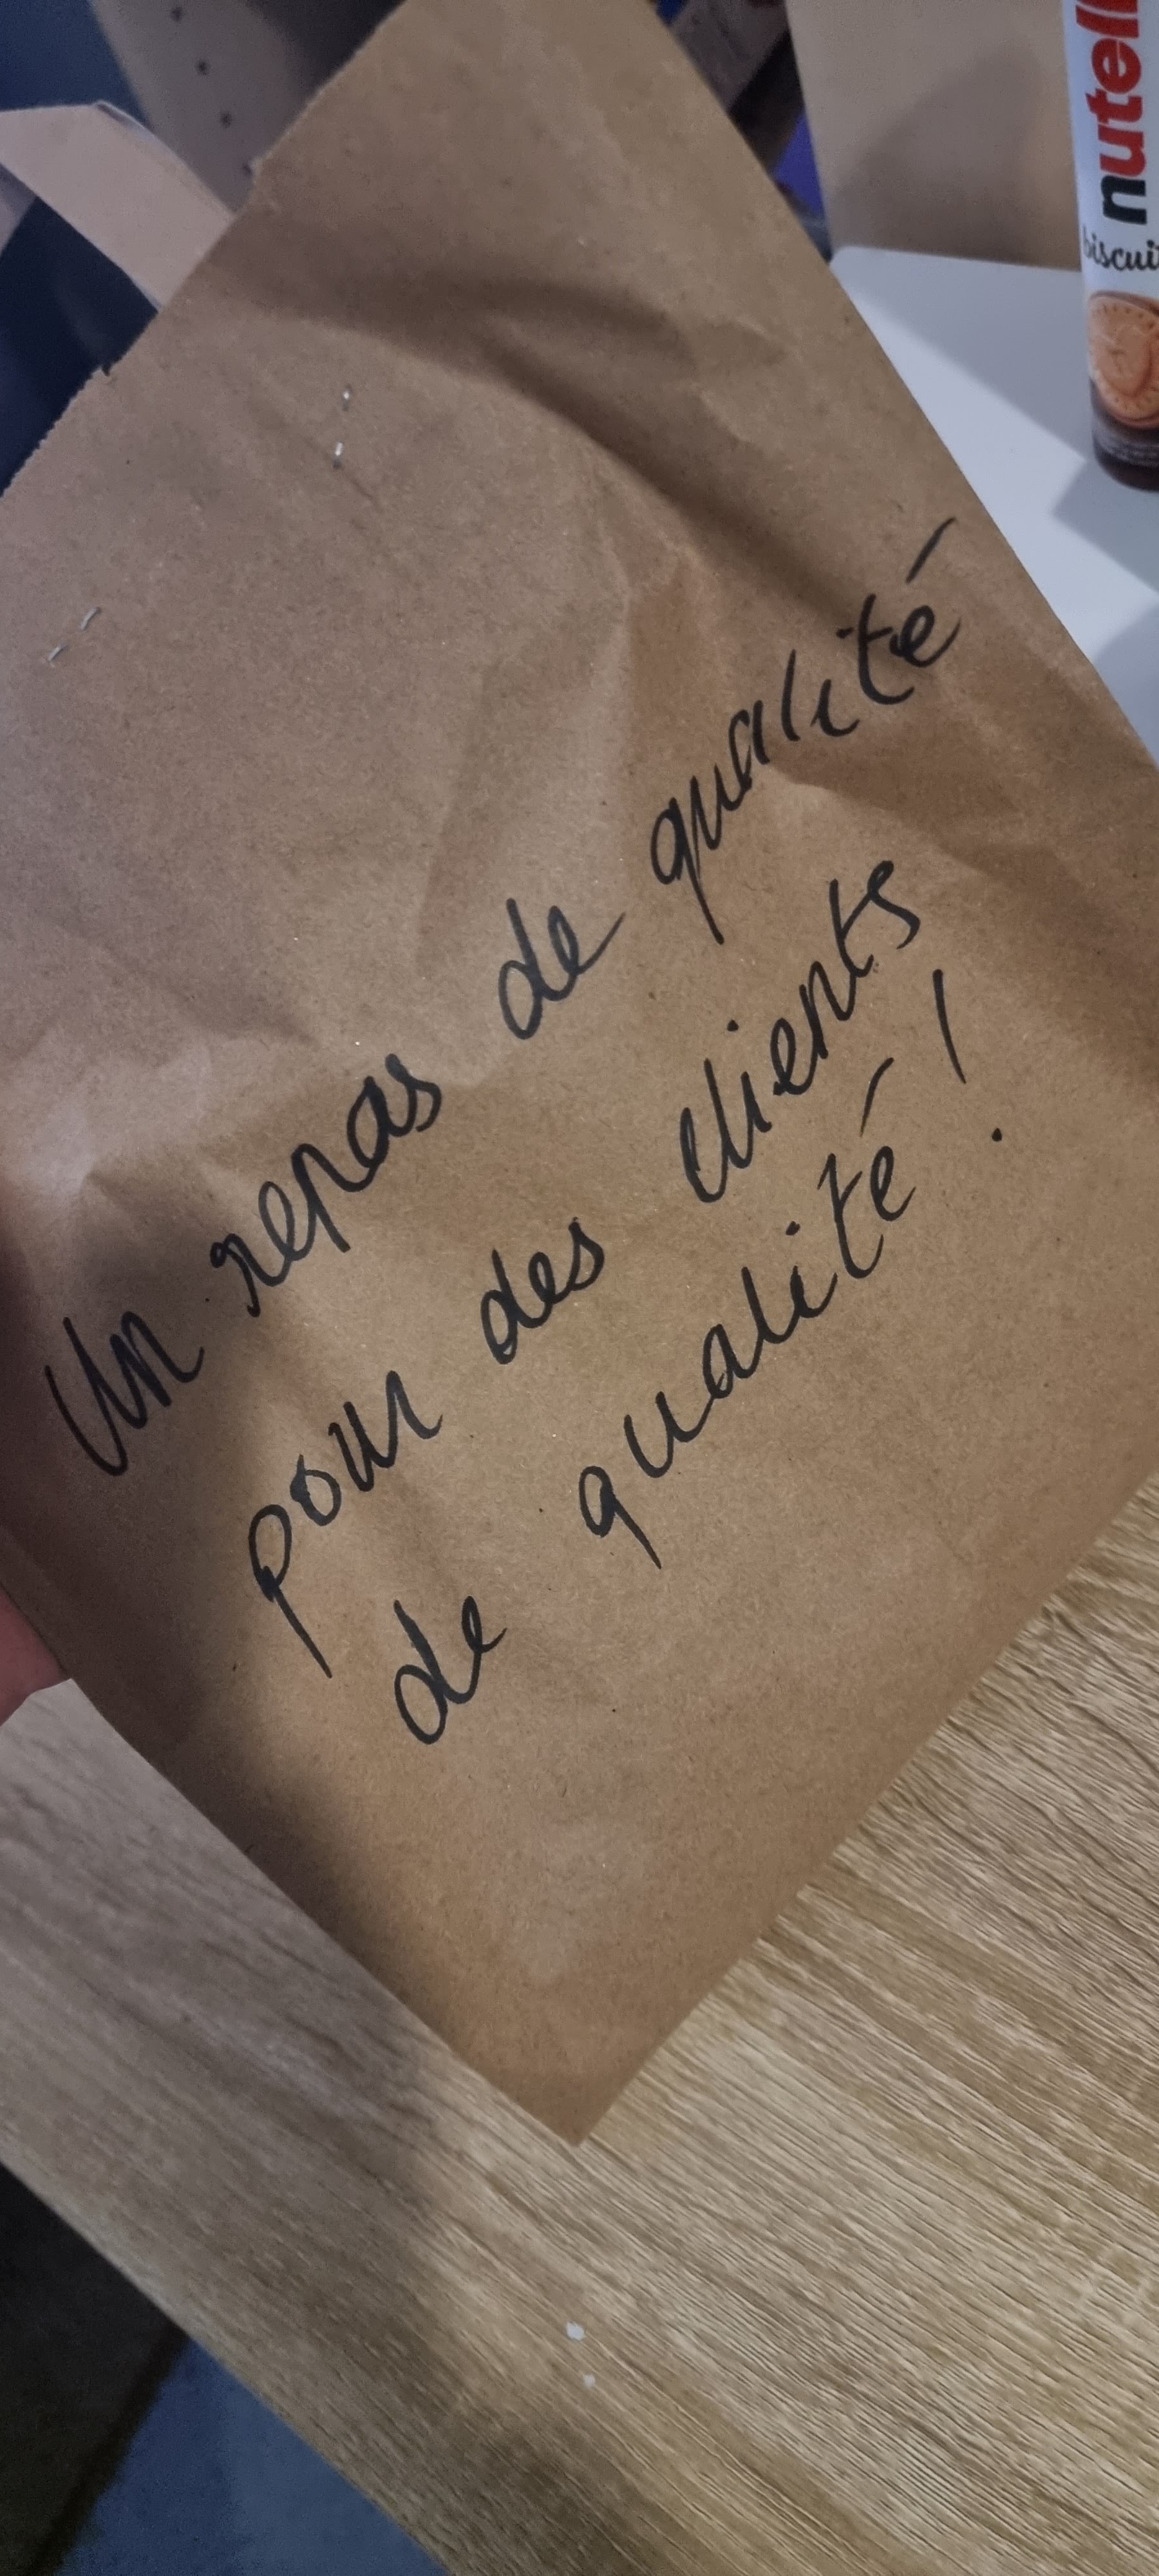 Un repas de qualité
pour des clients
de qualité !
nutell
biscuit